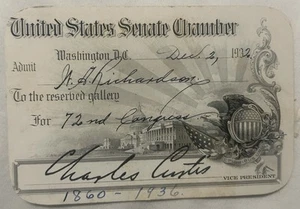 United States Senate Chamber
Washington, D.C. Dec. 2, 1932
Admit W. A. Richardson
To the reserved gallery
For 72nd Congress
Charles Curtis
VICE PRESIDENT
1860 - 1936.